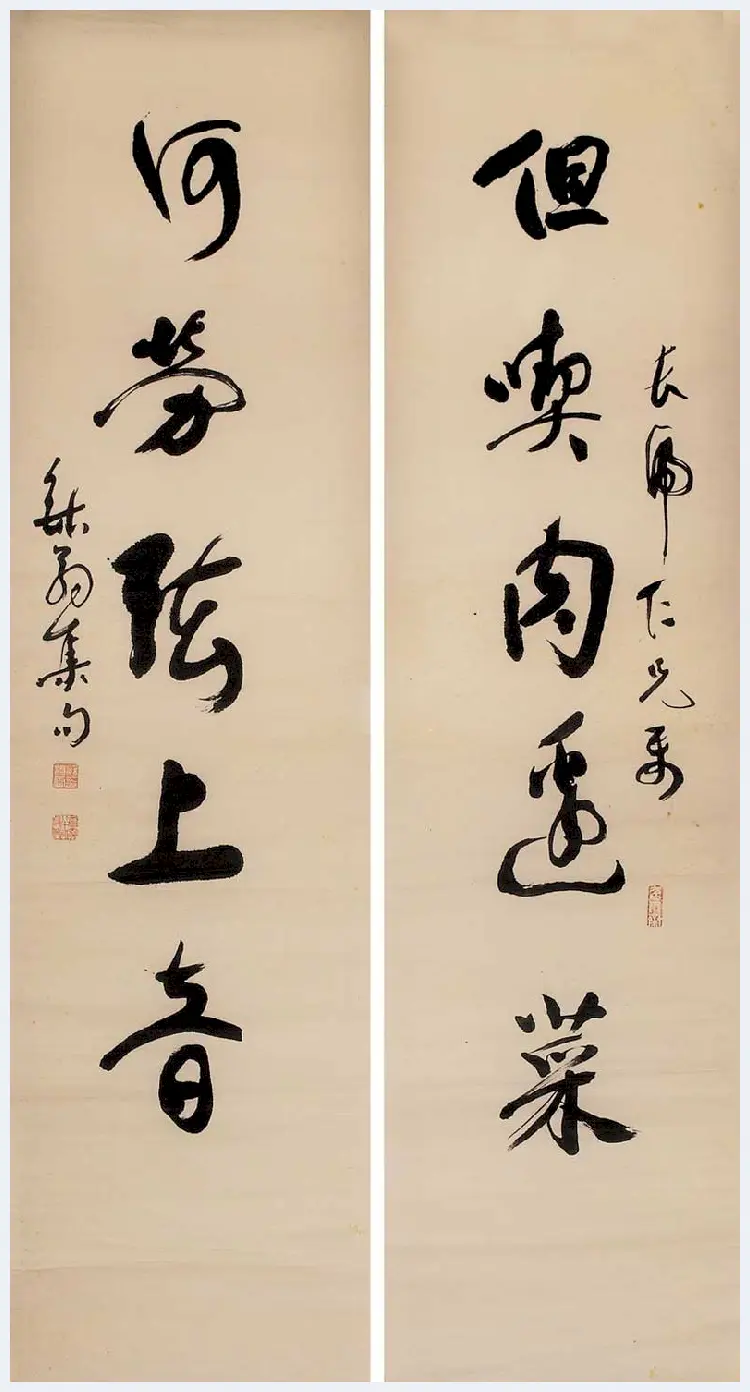 但喫肉邊菜
長仁兄屬
何勞弦上音
翁集句